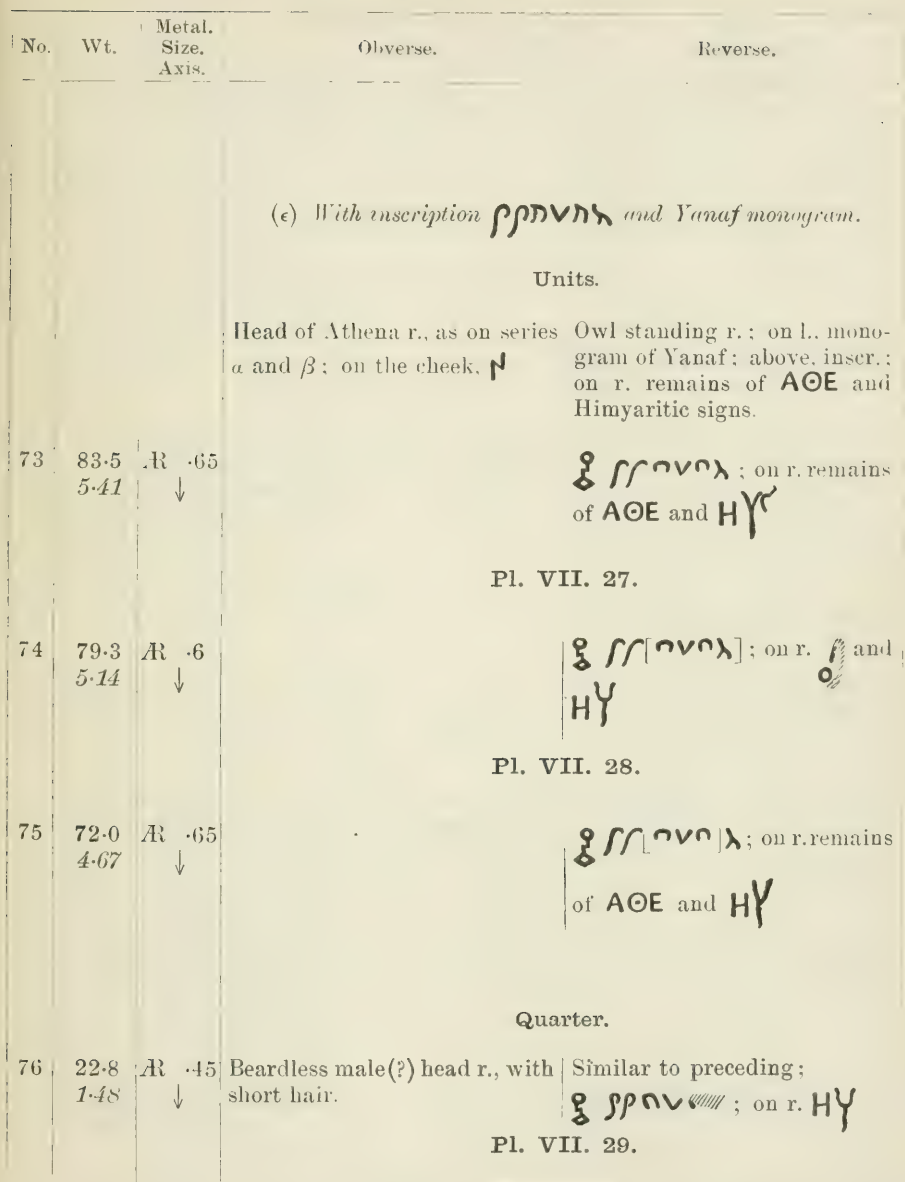 No. Wt. Metal. Size. Axis. Obverse. Reverse.
(ε) With inscription and Yanaf monogram.
Units.
Head of Athena r., as on series
α and β; on the cheek,
Owl standing r.; on l., mono-
gram of Yanaf; above, inscr.;
on r. remains of ΑΘΕ and
Himyaritic signs.
73 83·5 Æ ·65
5·41 ↓
; on r. remains
of ΑΘΕ and
Pl. VII. 27.
74 79·3 Æ ·6
5·14 ↓
; on r. and
Pl. VII. 28.
75 72·0 Æ ·65
4·67 ↓
; on r. remains
of ΑΘΕ and
Quarter.
76 22·8 Æ ·45
1·48 ↓
Beardless male(?) head r., with
short hair.
Similar to preceding;
; on r.
Pl. VII. 29.